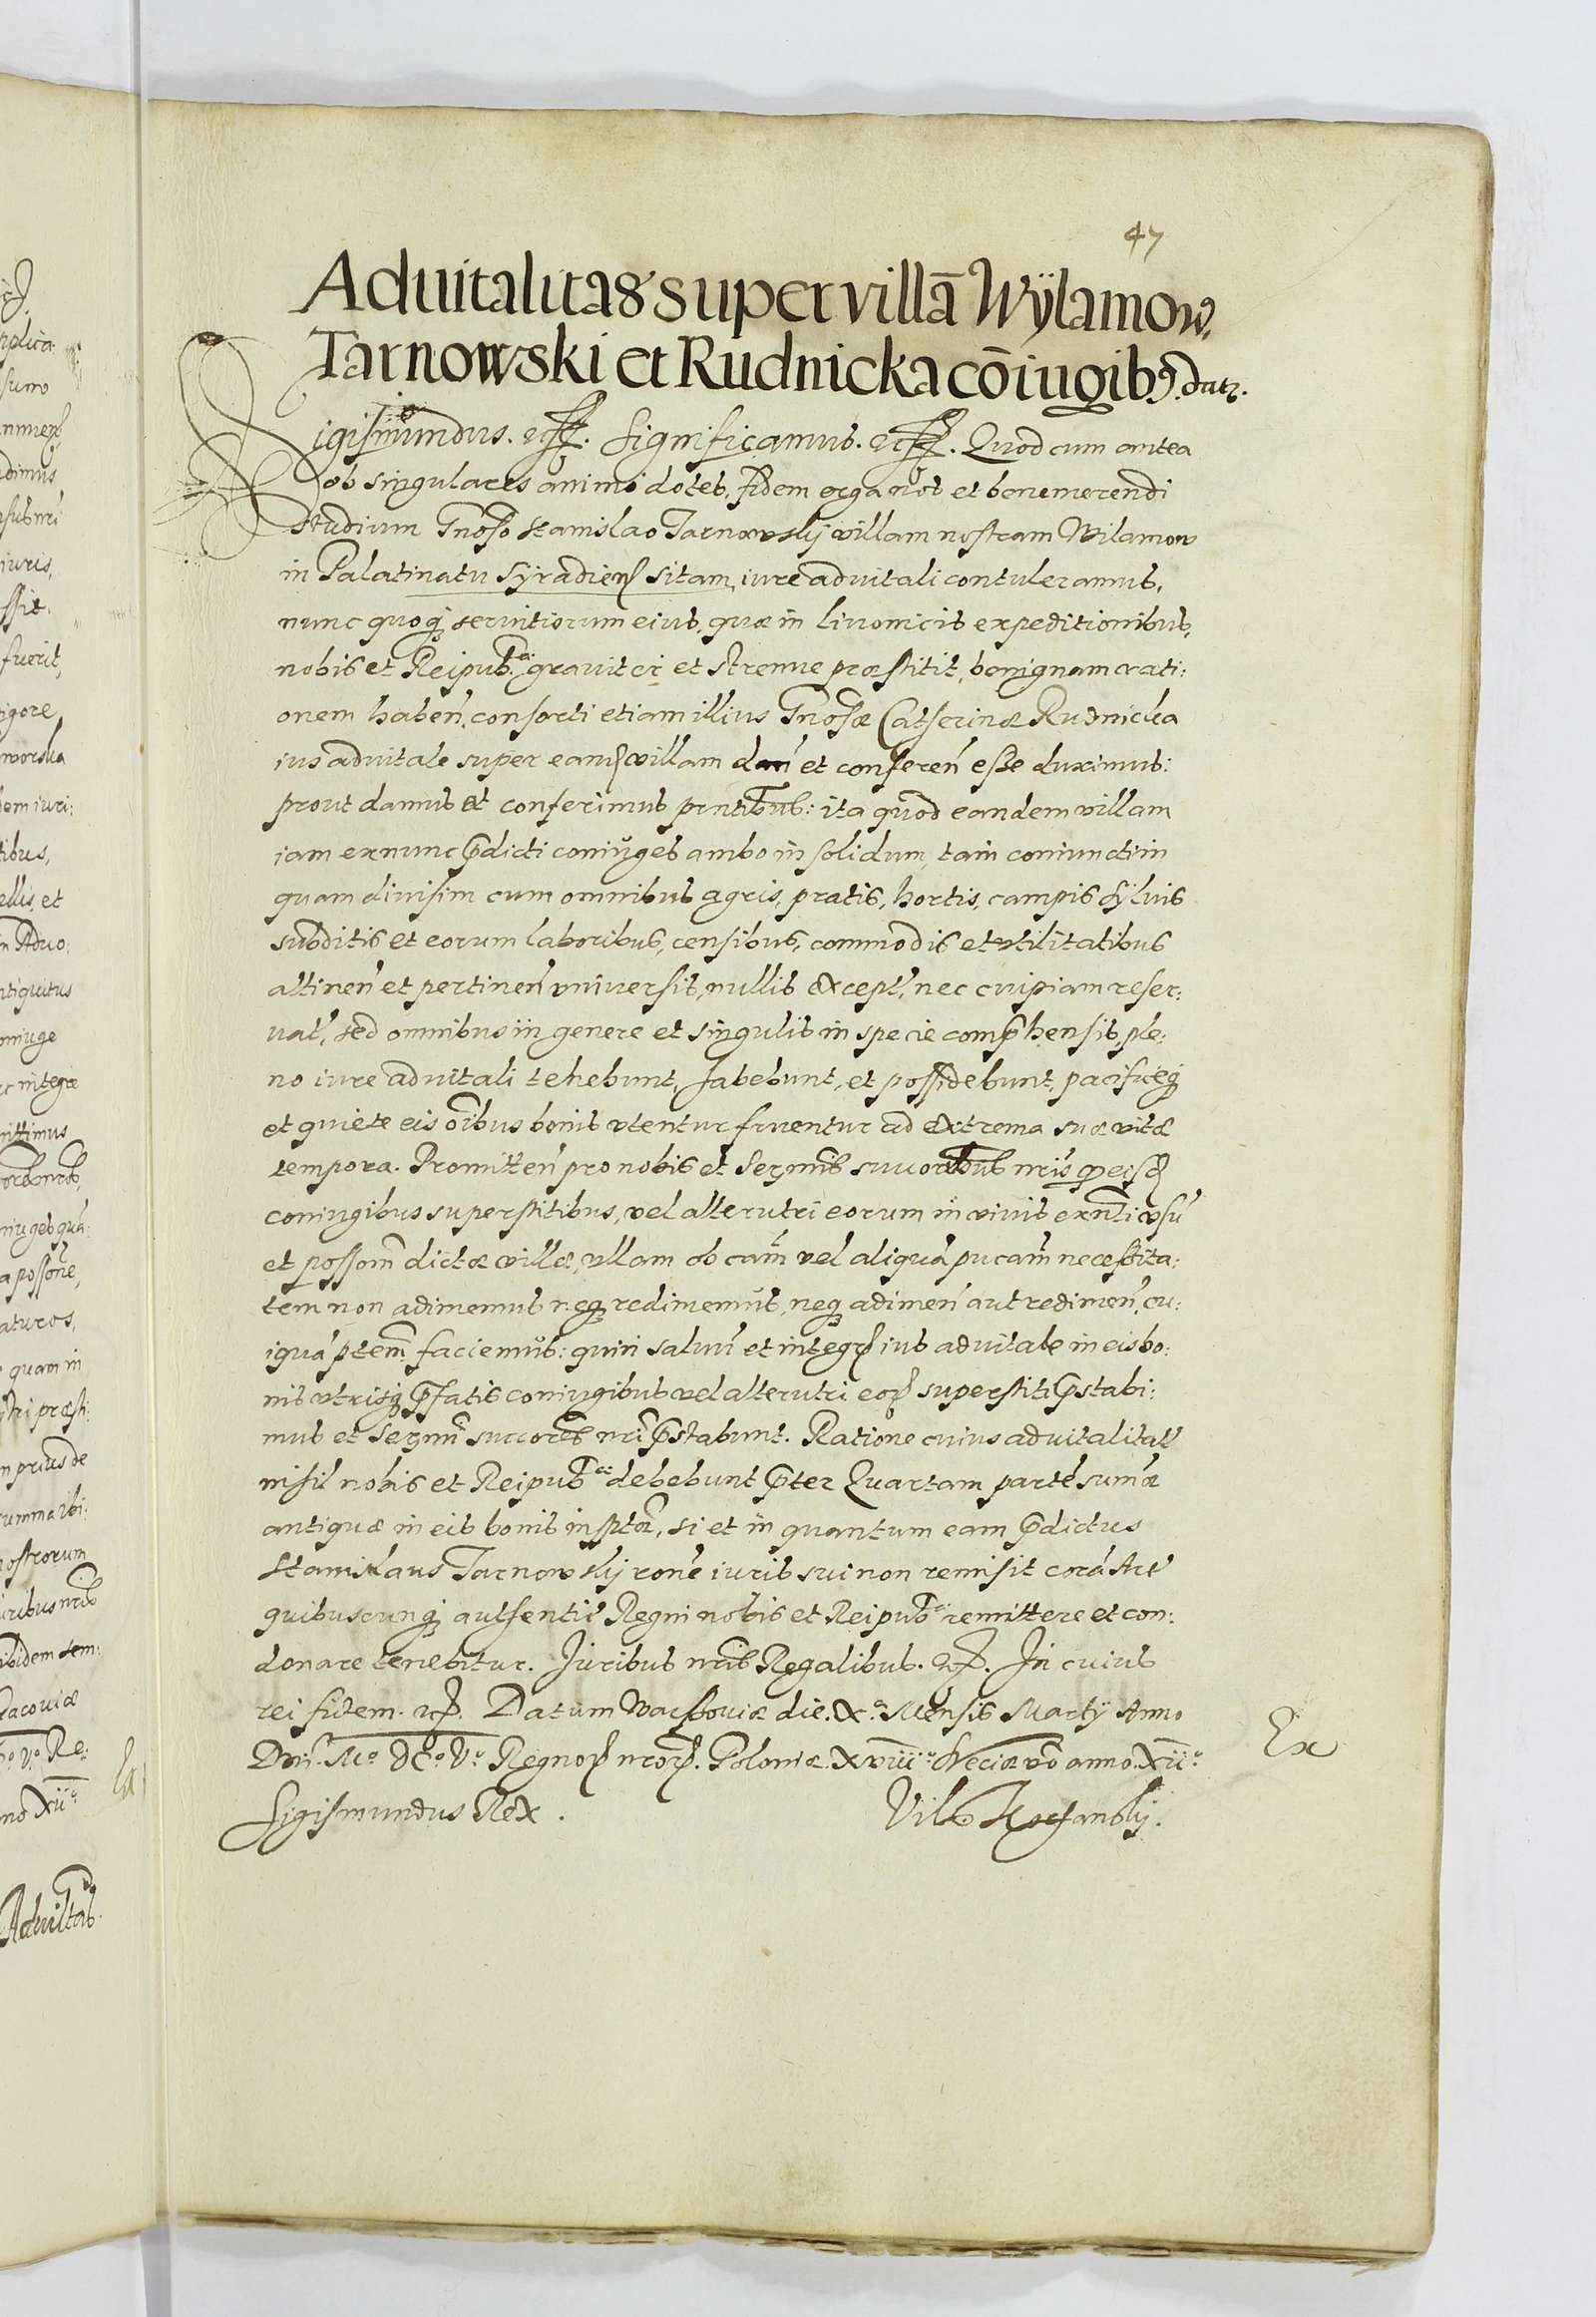 47
Aduitalitas super villā Wÿlamow,
Tarnowski et Rudnicka cōiugibꝰ. datꝛ.
Sigismundus. etc. Significamus. etc. Quod cum antea
ob singulares animi dotes, fidem erga nos et benemerendi
studium Gnoso Stanislao Tarnowskÿ villam nostram Wilamow
in Palatinatu Syradien̄ sitam, iure aduitali contuleramus,
nunc quoqꝫ seruitiorum eius, quæ in liuonicis expeditionibus,
nobis et Reipub.cæ grauiter et strenue præstitit, benignam rati:
onem haben̄, consorti etiam illius Gnosæ Catherinæ Rudnicka
ius aduitale super eand villam dan̄ et conferen̄ esse duximus:
prout damus et conferimus pn̄tibus: ita quod eandem villam
iam ex nunc p̄dicti coniuges ambo in solidum, tam coniunctim
quam diuisim cum omnibus agris, pratis, hortis, campis syluis
subditis et eorum laboribus, censibus, commodis et vtilitatibus
attinen̄ et pertinen̄ vniuersis, nullis except̄, nec cuipiam reser:
uat̄, sed omnibus in genere et singulis in specie comp̄hensis, ple:
no iure aduitali tenebunt, habebunt, et possidebunt, pacificeqꝫ
et quiete eis oībus bonis vtentur fruentur ad extrema suæ vitæ
tempora. Promitten̄ pro nobis et Sermis succoribus nr̄is qd eisd
coniugibus superstitibus, vel alterutri eorum in viuis exn̄ti vsū
et possom̄ dictæ villæ, vllam ob cam̄ vel aliquā pucam̄ necessita:
tem non adimemus neqꝫ redimemus, neqꝫ adimen̄ aut redimen̄, cu:
iquā ptem̄ faciemus: quin saluū et integꝝ ius aduitale in eis bo:
nis vtrisqꝫ p̄fatis coniugibus vel alterutri eoꝝ superstiti p̄stabi:
mus et Sermi succores nr̄i p̄stabunt. Ratione cuius aduitalitat̄
nihil nobis et Reipub.cæ debebunt p̄ter Quartam partē sum̄æ
antiquæ in eis bonis insptæ, si et in quantum eam p̄dictus
Stanislaus Tarnowskÿ rone iuris sui non remisit corā Act̄
quibuscunqꝫ authentic̄ Regni nobis et Reipub.cæ remittere et con:
donare tenebitur. Iuribus nr̄is Regalibus. etc. In cuius
rei fidem. etc. Datum Warssouiæ die. X.a Mensis Martÿ Anno
Dni. Mo. DCo. Vo. Regnoꝝ nr̄oꝝ. Poloniæ. XVIII.o Sveciæ vō anno. XII.o
Ex
Sigismundus Rex.